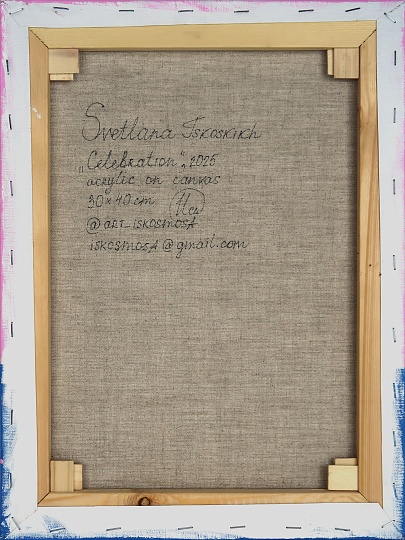 Svetlana Iskoskikh
„Celebration“, 2025
acrylic on canvas
30x40 cm
@art_iskosmosA
iskosmosA@gmail.com